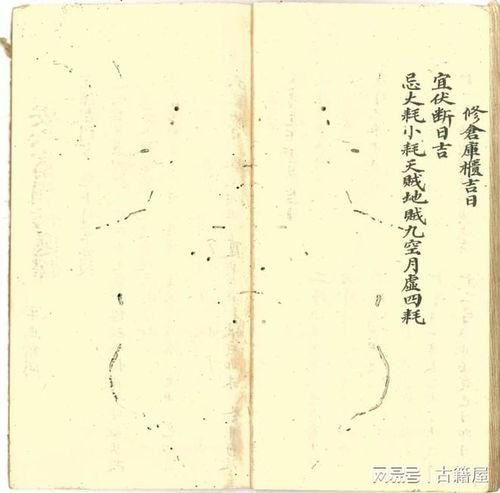 修倉庫櫃吉日
宜伏断日吉
忌大耗小耗天賊地賊九空月虛四耗
网易号 | 古籍屋